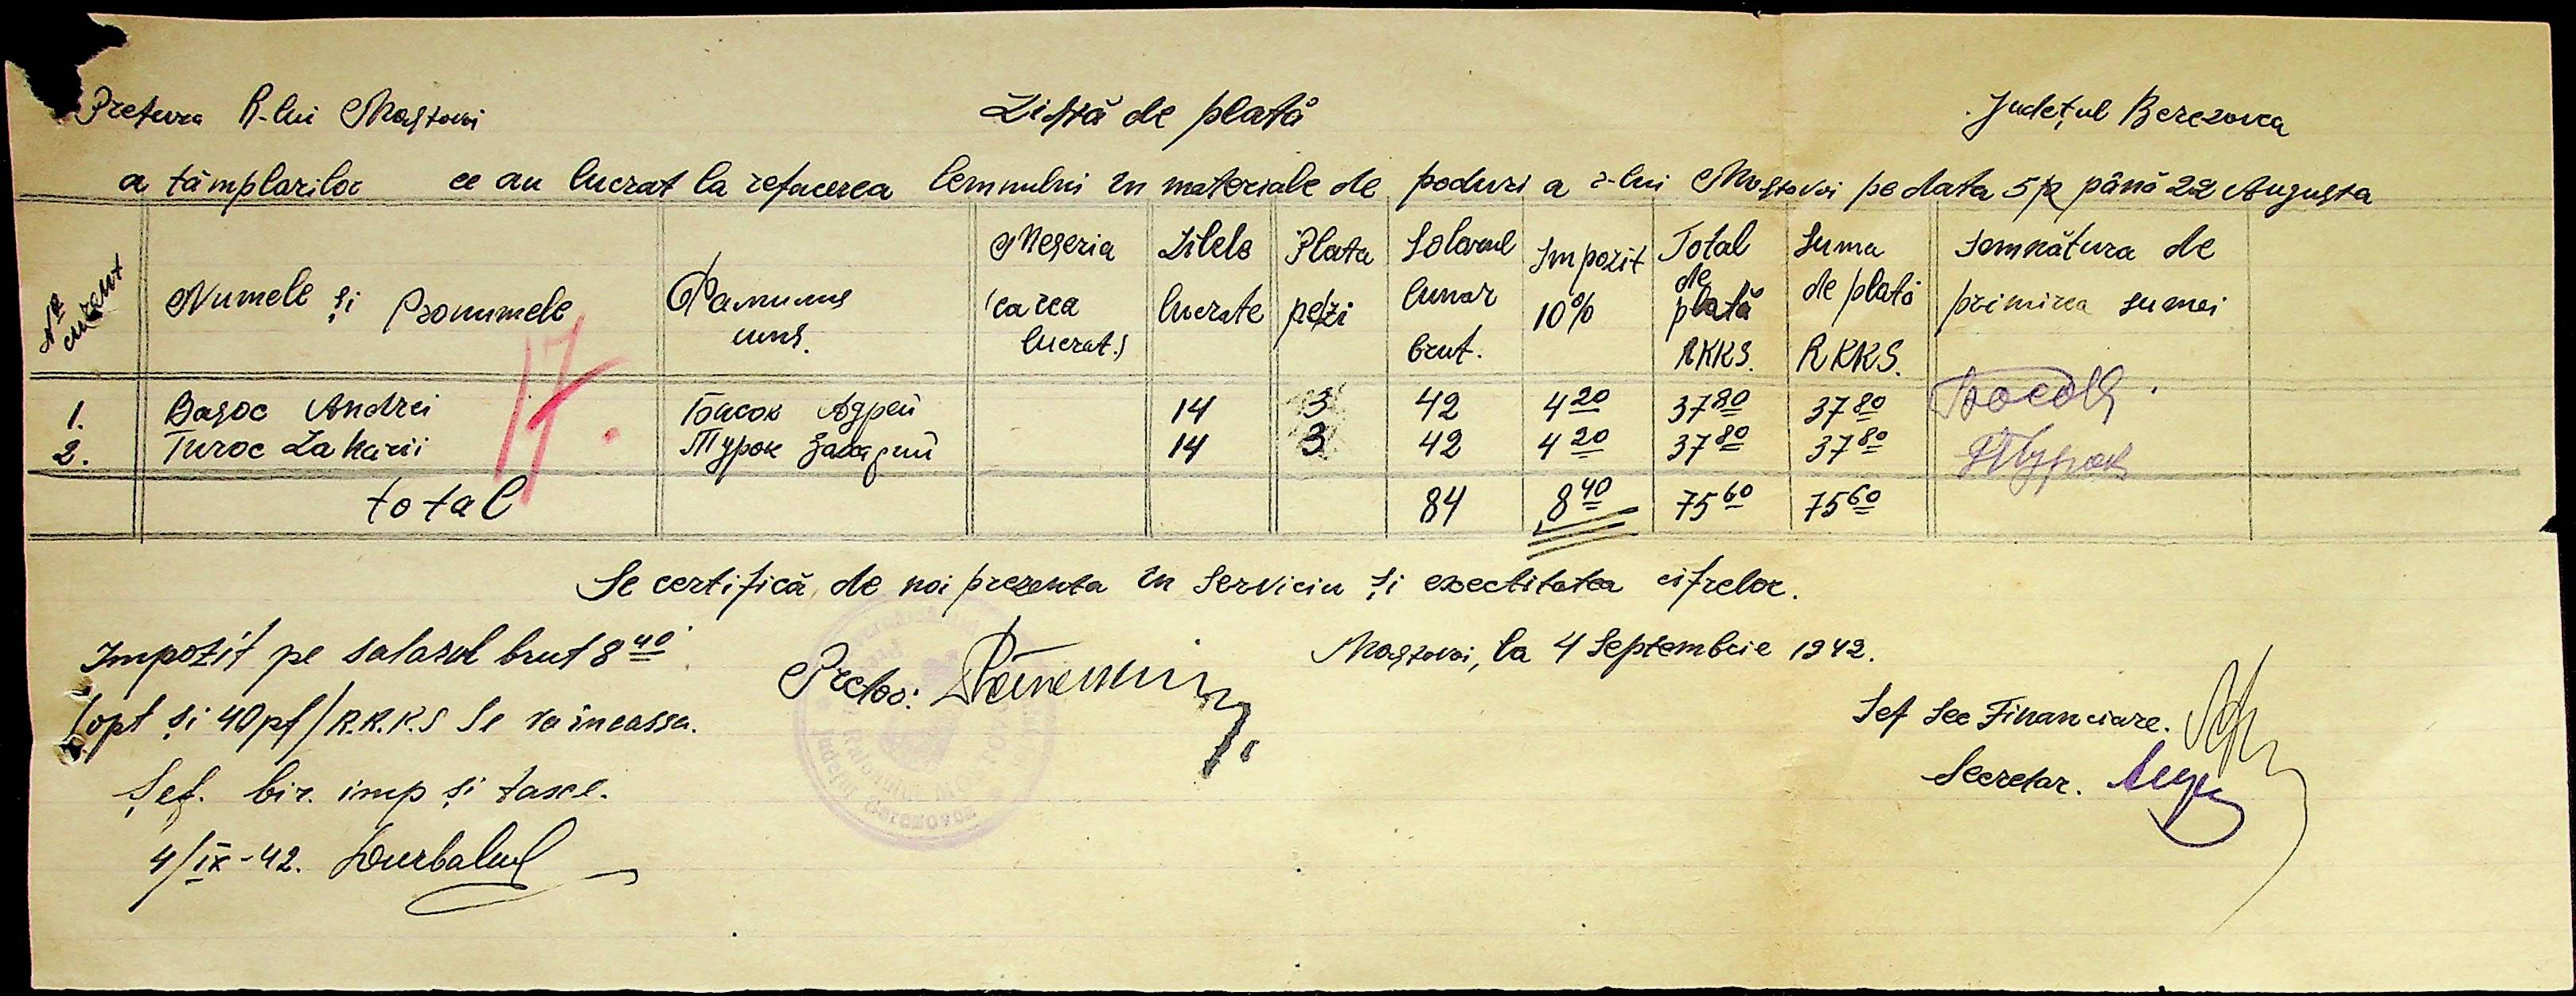 Pretura R-lui Mostovoi Listă de plată Județul Berezovca
a tâmplarilor ce au lucrat la refacerea lemnului în materiale de poduri a r-lui Mostovoi pe data 5 p până 22 Augusta
Nº curent Numele și Pronumele Фамилие имя. Meseria (carea lucrat.) Zilele lucrate Plata pe/zi Salarul lunar brut. Impozit 10% Total de plată RKKS. Suma de plată RKKS. Semnătura de primirea sumei
17.
1. Basoc Andrei Басок Адрей 14 3 42 4 20 37 80 37 80 Басок
2. Turoc Zaharii Турок Захарии 14 3 42 4 20 37 80 37 80 Турок
total 84 8 40 75 60 75 60
Se certifică de noi prezenta în serviciu și exectitatea cifrelor.
Impozit pe salarul brut 8 40
Mostovoi, la 4 Septembrie 1942.
/opt și 40 pf/ R.K.K.S Se va incassa.
Pretor:
Șef Sec Financiare.
Șef. bir. imp și taxe.
Secretar.
4/IX-42.
Raionului
Județul Berezovca